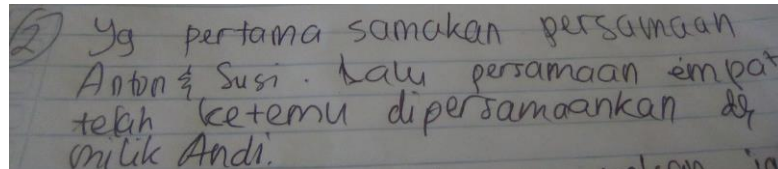 ② Yg pertama samakan persamaan
Anton & Susi. Lalu persamaan empat
telah ketemu dipersamaankan dg
milik Andi.